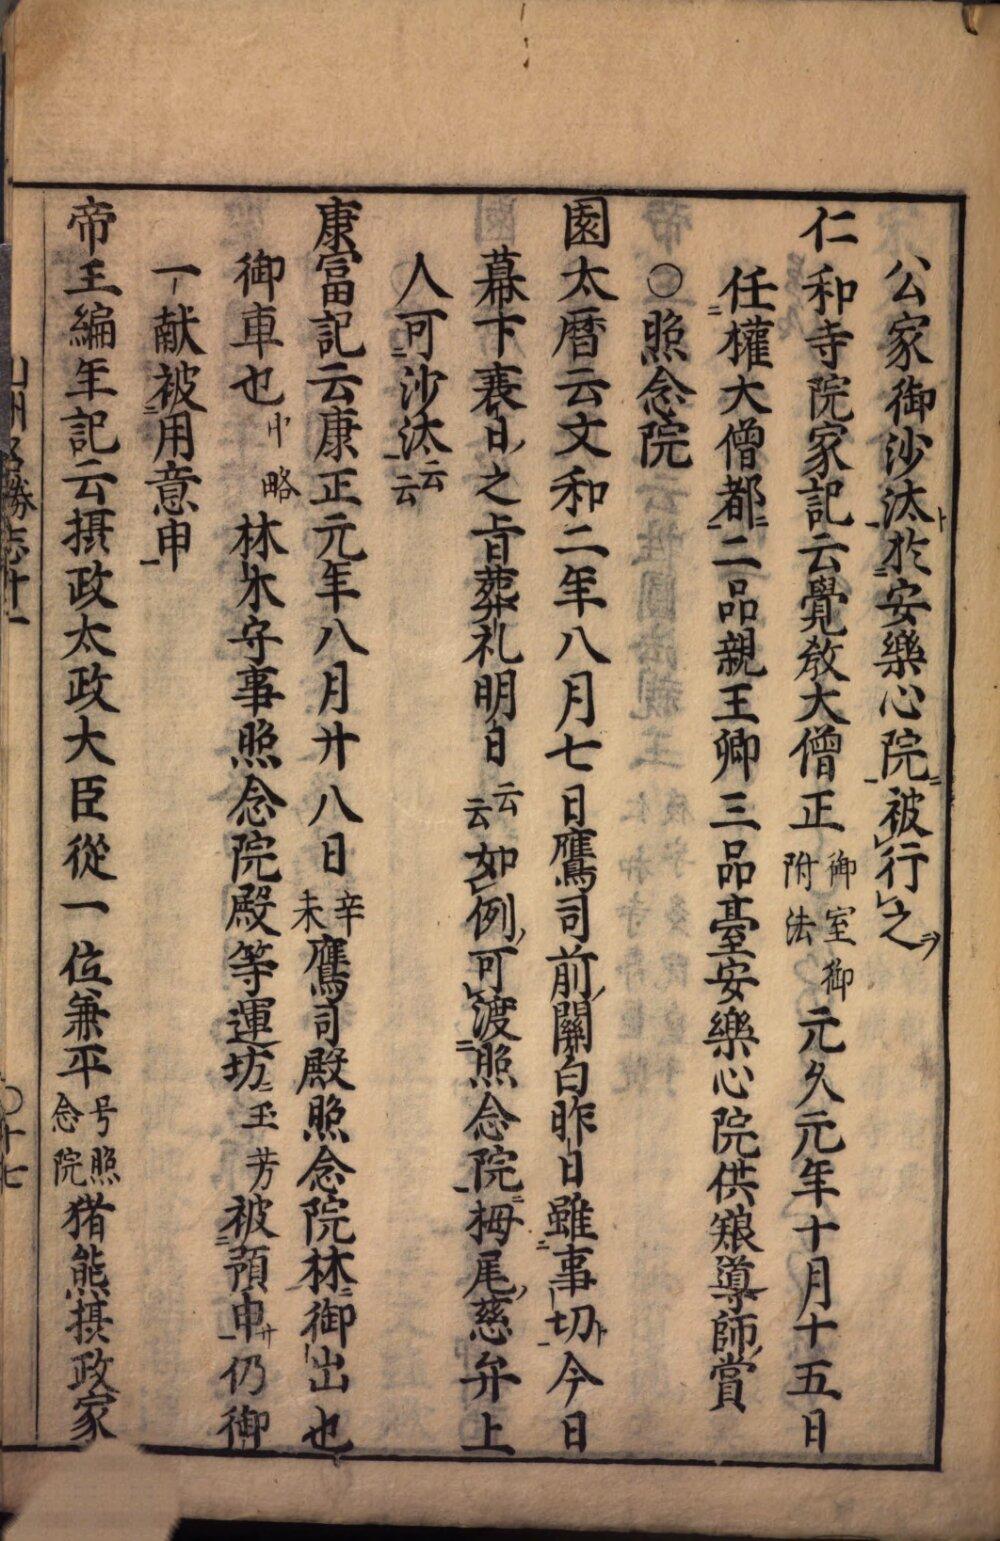 公家御沙汰於安樂心院被行之
仁和寺院家記云覺教大僧正御室御附法元久元年十月十五日
任權大僧都二品親王卿三品臺安樂心院供粮導師賞
〇照念院
園太暦云文和二年八月七日鷹司前關白昨日雖事切今日
幕下喪日之旨葬礼明日云云如例可渡照念院栂尾慈弁上
人可沙汰云云
康富記云康正元年八月廿八日辛未鷹司殿照念院林御出也
御車也中略林木守事照念院殿等運坊玉芳被預申仍御
一献被用意申
帝王編年記云摂政太政大臣從一位兼平号照念院猪熊摂政家
山州名勝志十一
〇十七